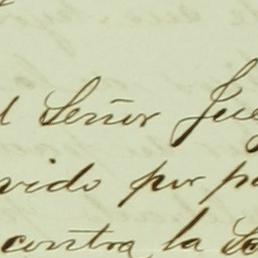 l Señor Jue
vido por pa
contra la So